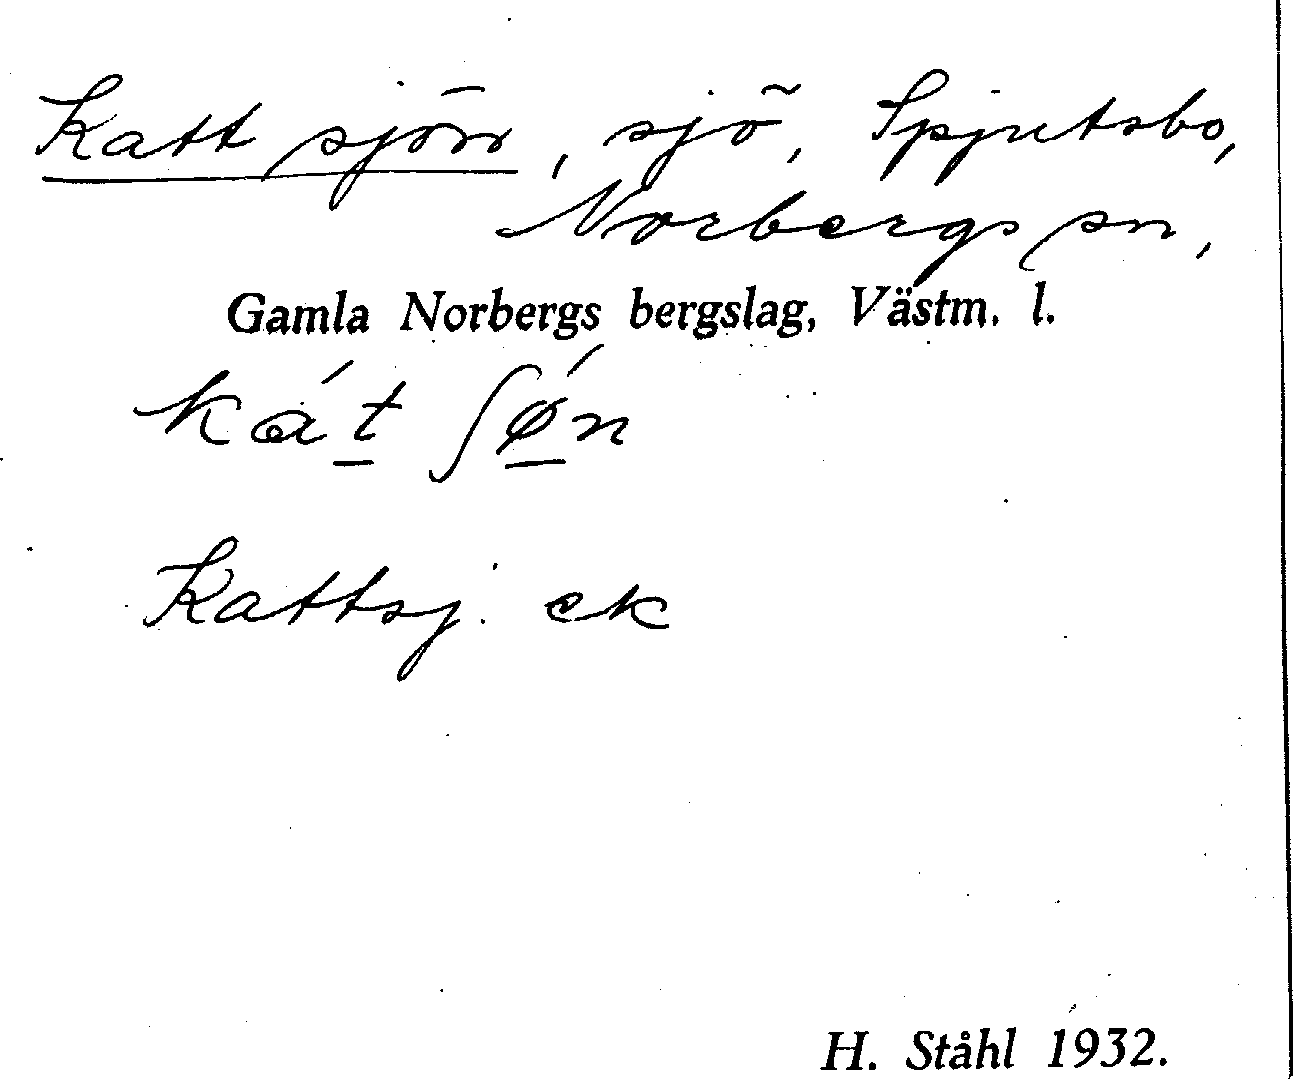 Kattsjön, sjö, Spjutsbo,
Norbergs sn,
Gamla Norbergs bergslag, Västm. l.
ká̀t ʃǿn
Kattsj. ek
H. Ståhl 1932.